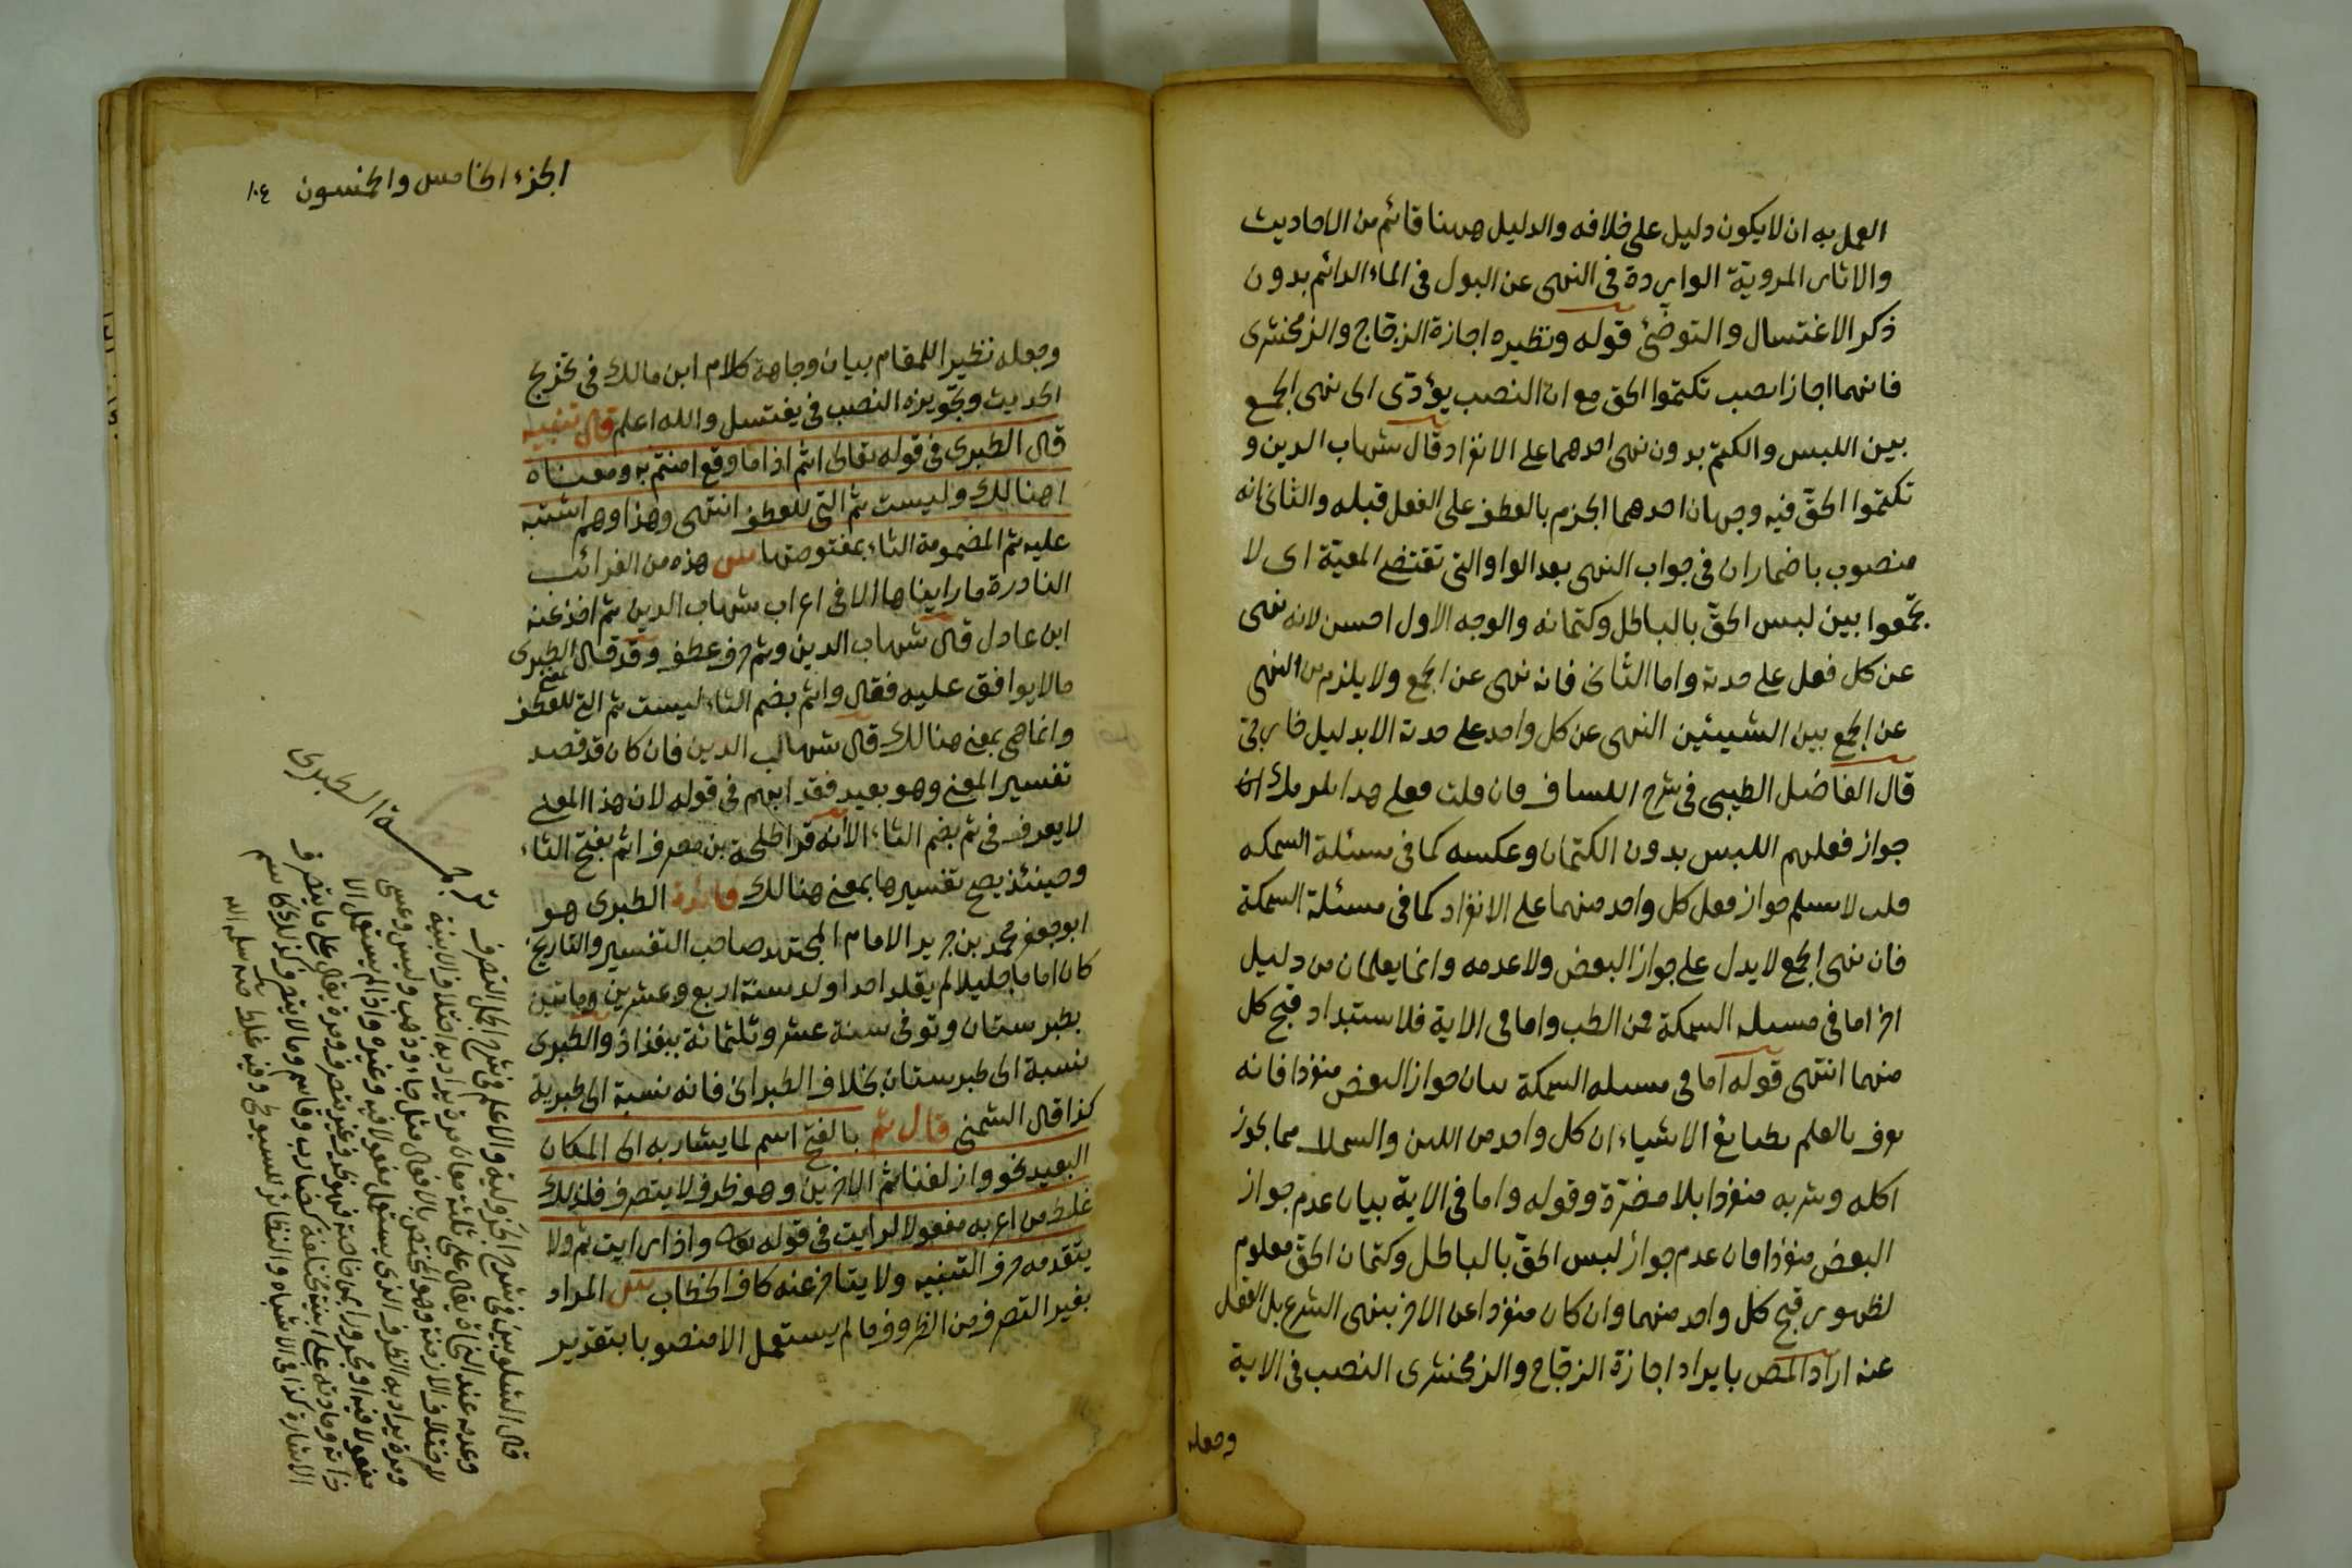 العمل به ان لا يكون دليل على خلافه والدليل ههنا قائم من الاحاديث
والاثار المروية الواردة فى النهى عن البول فى الماء الدائم بدون
ذكر الاغتسال والتوضئ قوله ونظيره اجازة الزجاج والزمخشرى
فانهما اجازا نصب تكتموا الحق مع ان النصب يؤدى الى نهى الجمع
بين اللبس والكتم بدون نهى احدهما على الانفراد قال شهاب الدين و
تكتموا الحق فيه وجهان احدهما الجزم بالعطف على الفعل قبله والثانى انه
منصوب باضمار ان فى جواب النهى بعد الواو التى تقتضى المعية اى لا
تجمعوا بين لبس الحق بالباطل وكتمانه والوجه الاول احسن لانه نهى
عن كل فعل على حدته واما الثانى فانه نهى عن الجمع ولا يلزم من النهى
عن الجمع بين الشيئين النهى عن كل واحد على حدته الا بدليل خارجى
قال الفاضل الطيبى فى شرح الكشاف فان قلت فعلى هذا يلزم
جواز فعلهم اللبس بدون الكتمان وعكسه كما فى مسئلة السمكه
قلت لا نسلم جواز فعل كل واحد منهما على الانفراد كما فى مسئلة السمكة
فان نهى الجمع لا يدل على جواز البعض ولا عدمه وانما يعلمان من دليل
اخر اما فى مسئله السمكة فمن الطب واما فى الاية فلاستبداد قبح كل
منهما انتهى قوله اما فى مسئله السمكة بيان جواز البعض منفردا فانه
عرف بالعلم بطبايع الاشياء ان كل واحد من اللبن والسمك مما يجوز
اكله وشربه منفردا بلا مضرة وقوله واما فى الاية بيان عدم جواز
البعض منفردا فان عدم جواز لبس الحق بالباطل وكتمان الحق معلوم
لظهور قبح كل واحد منهما وان كان منفردا عن الاخر بنهى الشرع بل العقل
عنه اراد المص بايراد اجازة الزجاج والزمخشرى النصب فى الاية
وجعله
الجزء الخامس والخمسون ١٠٤
وجعله نظيرا للمقام بيان وجاهة كلام ابن مالك فى تخريج
الحديث وتجويزه النصب فى يغتسل والله اعلم قال تنبيه
قال الطبرى فى قوله تعالى اثم اذا ما وقع امنتم به ومعناه
اهنالك وليست ثم التى للعطف انتهى وهذا وهم اشتبه
عليه ثم المضمومة الثاء بمفتوحتها ش هذه من الغرائب
النادرة ما رايناها الا فى اعراب شهاب الدين ثم اخذ عنه
ابن عادل قال شهاب الدين وثم حرف عطف وقد قال الطبرى
ما لا يوافق عليه فقال واثم بضم الثاء ليست ثم التى بمعنى للعطف
وانما هى بمعنى هنالك قال شهاب الدين فان كان قد قصد
تفسير المعنى وهو بعيد فقد ابهم فى قوله لان هذا المعنى
لا يعرف فى ثم بضم الثاء الا انه قرا طلحة بن مصرف اثم بفتح الثاء
وحينئذ يصح تفسيرها بمعنى هنالك فائدة الطبرى هو
ابو جعفر محمد بن جرير الامام المجتهد صاحب التفسير والتاريخ
كان اماما جليلا لم يقلد احدا ولد سنة اربع وعشرين وماتين
بطبرستان وتوفى سنة عشر وثلثمائة ببغداد والطبرى
نسبة الى طبرستان بخلاف الطبرانى فانه نسبة الى طبرية
كذا قال الشمنى قال ثم بالفتح اسم لما يشار به الى المكان
البعيد نحو وازلفنا ثم الاخرين وهو ظرف لا يتصرف فلذلك
غلط من اعربه مفعولا لرايت فى قوله تعالى واذا رايت ثم ولا
يتقدمه حرف التنبيه ولا يتاخر عنه كاف الخطاب ش المراد
بغير التصرف من الظروف ما لم يستعمل الا منصوبا بتقدير
ترجمة الطبرى
قال الشلوبين فى شرح الجزولية والاعلم فى شرح الجمل التصرف
وعدمه عند النحاة يقال على ثلثة معان مرة يراد به اختلاف الابنية
لاختلاف الازمنة وهو المختص بالافعال مثل جاء وذهب وليس وعسى
ومرة يراد به الظرف الذى يستعمل مفعولا فيه وغيره واذا لم يستعمل الا
مفعولا فيه او مجرورا بمن خاصة فهو ظرف غير متصرف ومرة يقال على ما يتصرف
ذاته ومادته على ابنية مختلفة كضارب وقاسم وما لا يتصرف كذلك كاسم
الاشارة كذا فى الاشباه والنظائر للسيوطى